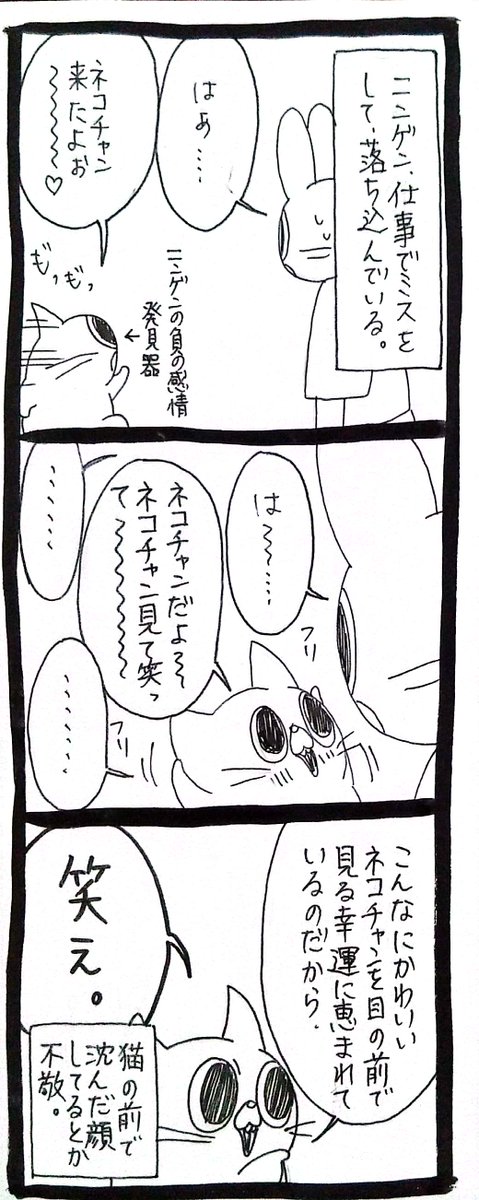 ニンゲン、仕事でミスを
して、落ち込んでいる。
はぁ……
ネコチャン
来たよぉ
〜〜〜〜♡
ニンゲンの負の感情
発見器
もっもっ
は〜〜……
フリ
ネコチャンだよ〜〜
ネコチャン見て笑っ
て〜〜〜〜〜〜
フリ
………
………
こんなにかわいい
ネコチャンを目の前で
見る幸運に恵まれて
いるのだから、
笑え。
猫の前で
沈んだ顔
してるとか
不敬。